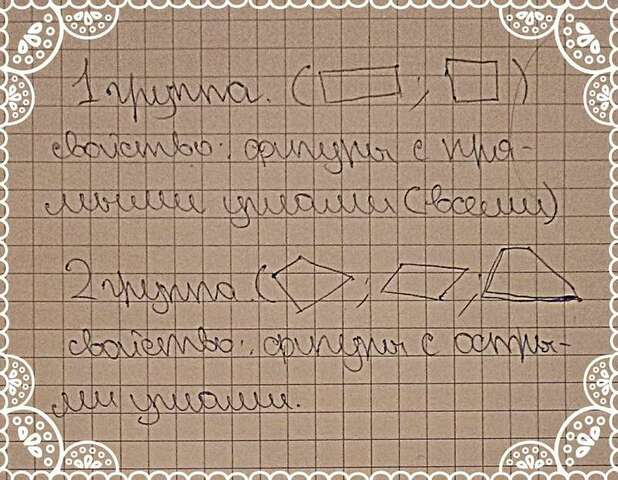 1 группа. ( ; )
свойство: фигуры с пря-
мыми углами (всеми)
2 группа ( ; ; )
свойство: фигуры с остры-
ми углами.